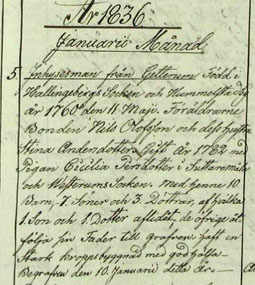 År 1836
Januarii Månad
5. Inhysesman från Gillerum Född i
Hallingebergs Socken och Hummelstad By
år 1760 den 11 Maji. Föräldrarne
Bonden Nils Olofson och dess hustru
Stina Andersdotter. Gift år 1782 med
Pigan Cicilia Persdotter i
och Westerums Socken. Med henne 10
Barn, 7. Söner och 3. Döttrar, af hvilka
1. Son och 1. Dotter aflidit, de öfrige att
följa sin Fader till grafven, haft en
Stark kroppsbyggnad med god hälsa.
Begrafven den 10 Januarii detta År